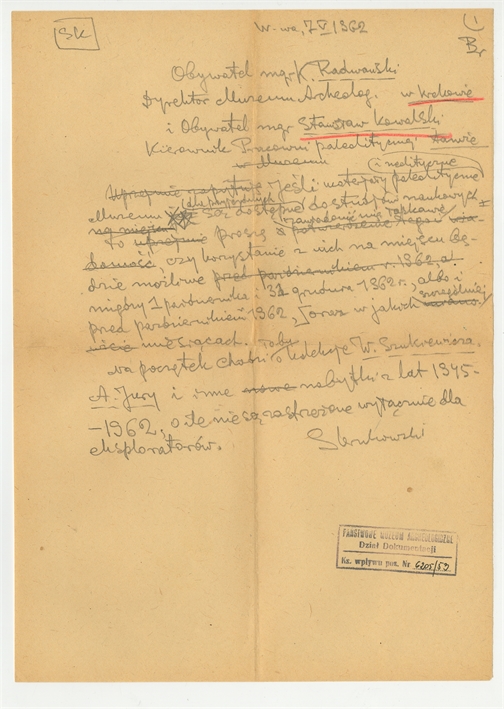 SK
W-wa, 7 V 1962
1
Obywatel mgr K. Radwański
Dyrektor Muzeum Archeolog. w Krakowie
i Obywatel mgr Stanisław Kowalski
Kierownik Pracowni paleolitycznej tamże
w Muzeum
i neolityczne
Uprzejmie zapytuję jeśli materiały paleolityczne
Muzeum są dostępne do studiów naukowych
na miejscu
to uprzejmie proszę o
czy korzystanie z nich na miejscu bę-
dzie możliwe przed październikiem r. 1962, al
między 1 października i 31 grudnia 1962 r., albo i
przed październikiem 1962, oraz w jakich
miesiącach roku
Na początek chodzi o kolekcje W. Szukiewicza,
A. Jury i inne nowe nabytki z lat 1945-
-1962, o ile nie są zastrzeżone wyłącznie dla
eksploratorów.
S Krukowski
PAŃSTWOWE MUZEUM ARCHEOLOGICZNE
Dział Dokumentacji
Ks. wpływu poz. Nr